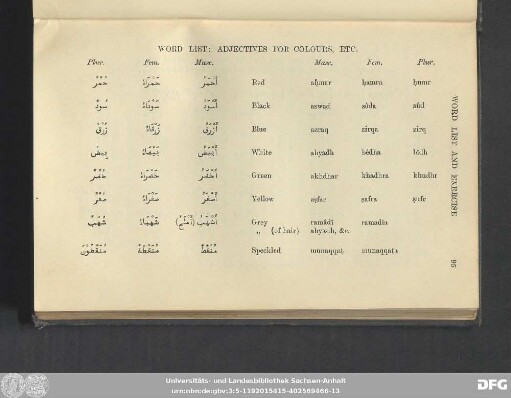 WORD LIST: ADJECTIVES FOR COLOURS, ETC.
Plur. Fem. Masc. Masc. Fem. Plur.
حُمْرٌ حَمْرَاءُ أَحْمَرُ Red aḥmar ḥamra ḥumr
سُودٌ سَوْدَاءُ أَسْوَدُ Black aswad sōda sūd
زُرْقٌ زَرْقَاءُ أَزْرَقُ Blue azraq zirqa zirq
بِيضٌ بَيْضَاءُ أَبْيَضُ White abyadh bēdha bīdh
خُضْرٌ خَضْرَاءُ أَخْضَرُ Green akhdhar khadhra khudhr
صُفْرٌ صَفْرَاءُ أَصْفَرُ Yellow aṣfar ṣafra ṣufr
شُهْبٌ شَهْبَاءُ أَشْهَبُ (أَمْلَحُ) Grey ramādī ramadīa
„ (of hair) abyadh, &c.
مُنَقَّطُونَ مُنَقَّطَةٌ مُنَقَّطٌ Speckled munaqqaṭ munaqqaṭa
WORD LIST AND EXERCISE
95
Universitäts- und Landesbibliothek Sachsen-Anhalt
urn:nbn:de:gbv:3:5-1192015415-402569466-13
DFG